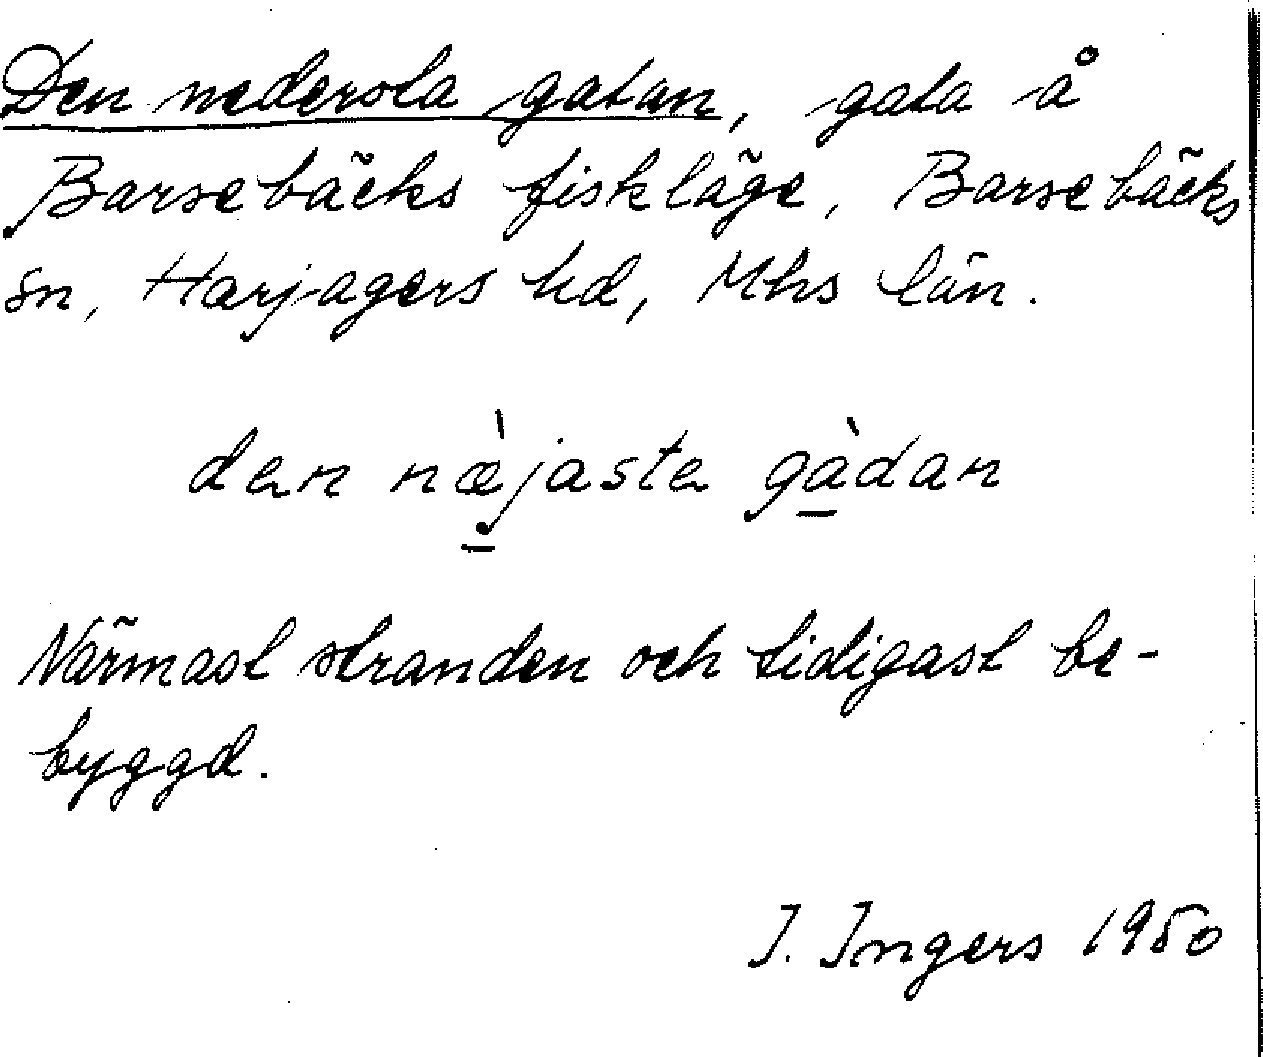 Den nedersta gatan, gata å
Barsebäcks fiskläge, Barsebäcks
sn, Harjagers hd, Mhs län.
den næ̀jasta gàdan
Närmast stranden och tidigast be-
byggd.
I. Ingers 1950